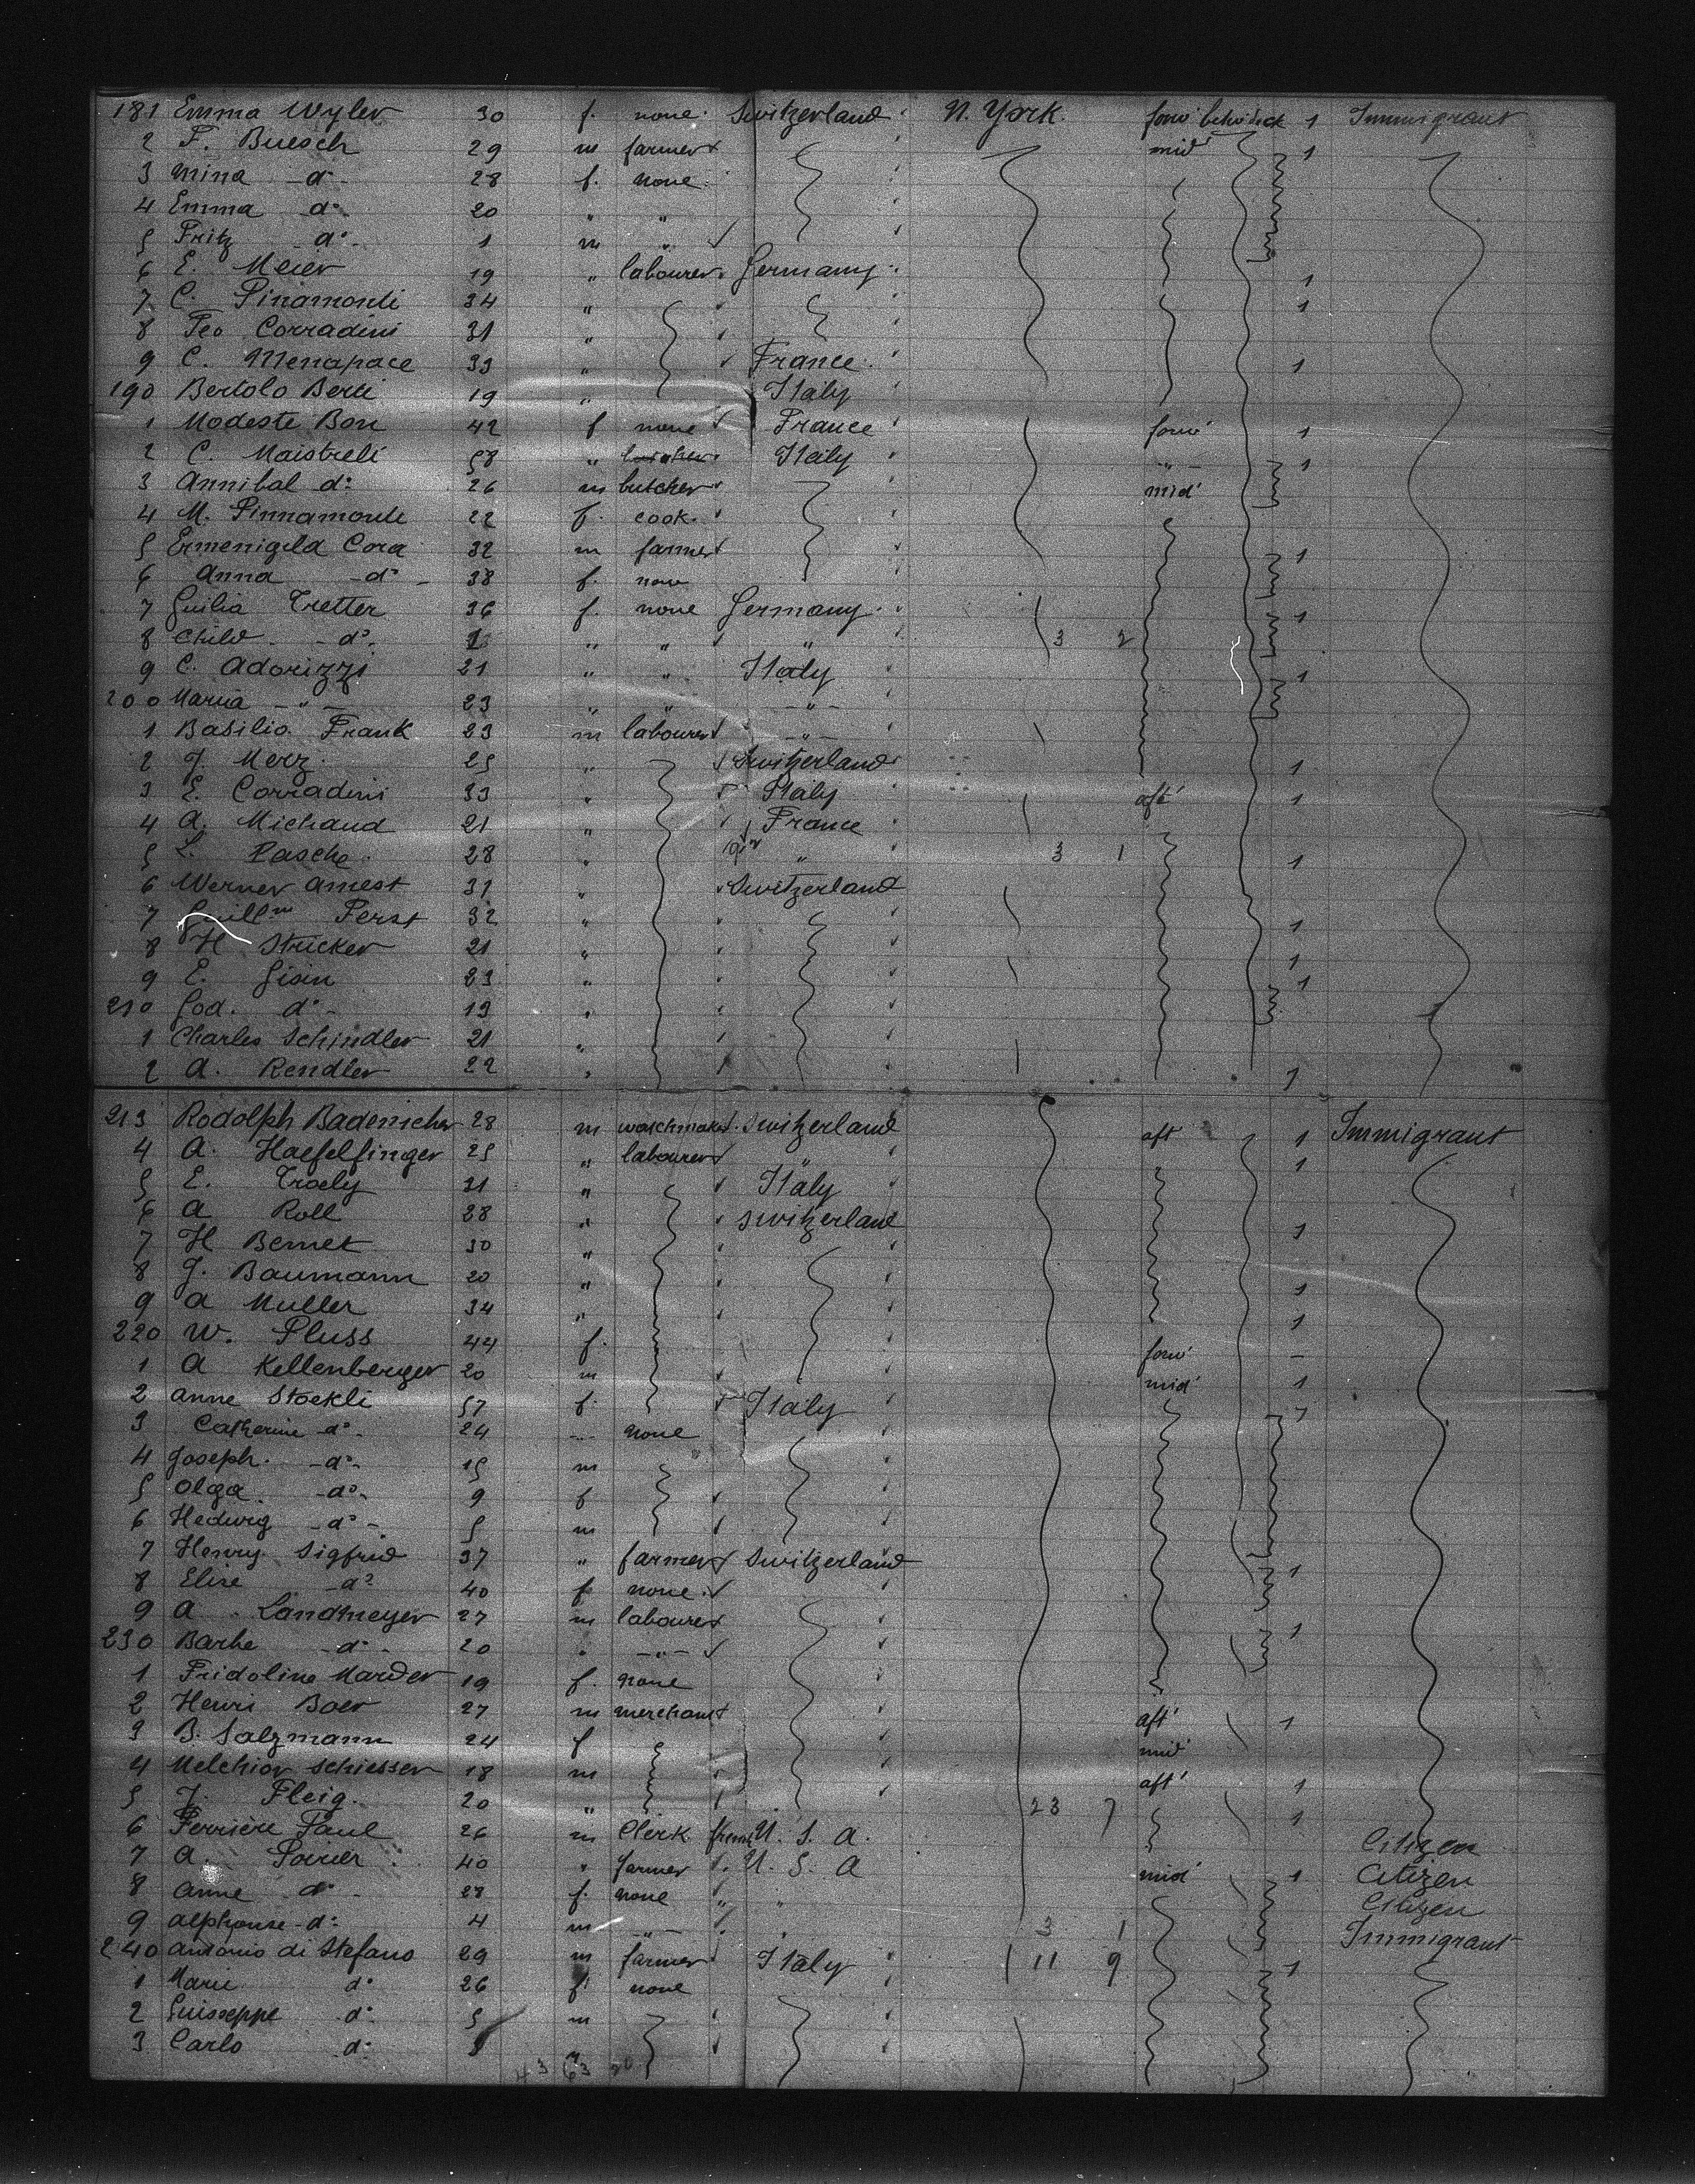 181 Emma Wyler 30 f. none. Switzerland N. York. forw' betw' deck 1 Immigrant
2 F. Buesch 29 m farmer mid' 1
3 Mina do 28 f. none
4 Emma do 20 " "
5 Fritz do 1 m "
6 E. Meier 19 " labourer Germany 1
7 C. Pinamonti 34 " 1
8 Teo Corradini 31 "
9 C. Menapace 33 " France 1
190 Bertolo Berti 19 " Italy
1 Modeste Bon 42 f none France forw' 1
2 C. Maistreli 58 " Italy " 1
3 Annibal do 26 m butcher mid'
4 M. Pinnamonte 22 f. cook
5 Ermenigild Cora 32 m farmer 1
6 Anna do 38 f. none
7 Guilia Tretter 36 f. none Germany 1
8 Child do 1 " " " 3 2
9 C. Adorizzi 21 " " Italy 1
200 Maria " 23 " " "
1 Basilio Frank 23 m labourer "
2 J. Merz 25 " Switzerland 1
3 E. Corradini 33 " Italy aft' 1
4 A. Michaud 21 " France
5 L. Pasche 28 " " 3 1 1
6 Werner Amest 31 " Switzerland
7 Perst 32 " 1
8 H Stricker 21 " 1
9 E. Gisin 23 " 1
210 God. do 19 "
1 Charles Schindler 21 "
2 A. Rendler 22 " 1
213 Rodolph Badenicher 28 m watchmaker Switzerland aft 1 Immigrant
4 A. Haefelfinger 25 " labourer " 1
5 E. Troely 31 " Italy
6 A Roll 28 " Switzerland
7 H Bemet 30 " 1
8 J. Baumann 20 " 1
9 A Muller 34 " 1
220 W. Pluss 44 f. forw' -
1 A Kellenberger 20 m mid' 1
2 Anne Stoekli 57 f. Italy 1
3 Catherine do 24 " none
4 Joseph do 15 m
5 Olga do 9 f
6 Hedwig do 5 m
7 Henry Sigfrid 37 " farmer Switzerland 1
8 Elise do 40 f none
9 A. Landmeyer 27 m labourer 1
230 Barbe do 20 " "
1 Fridoline Marder 19 f. none
2 Henri Boer 27 m merchant aft' 1
3 B. Salzmann 24 f mid'
4 Melchior Schiesser 18 m aft' 1
5 J. Fleig. 20 " 23 7 1
6 Perrière Paul 26 m Clerk U. S. A. Citizen
7 A. Poirier 40 " farmer U. S. A mid' 1 Citizen
8 Anne do 28 f. none " " Citizen
9 Alphonse do 4 m " " 3 1 Immigrant
240 Antonio di Stefano 29 m farmer Italy 11 9 1
1 Marie do 26 f none
2 Guisseppe do 5 m
3 Carlo do "
43 63 20